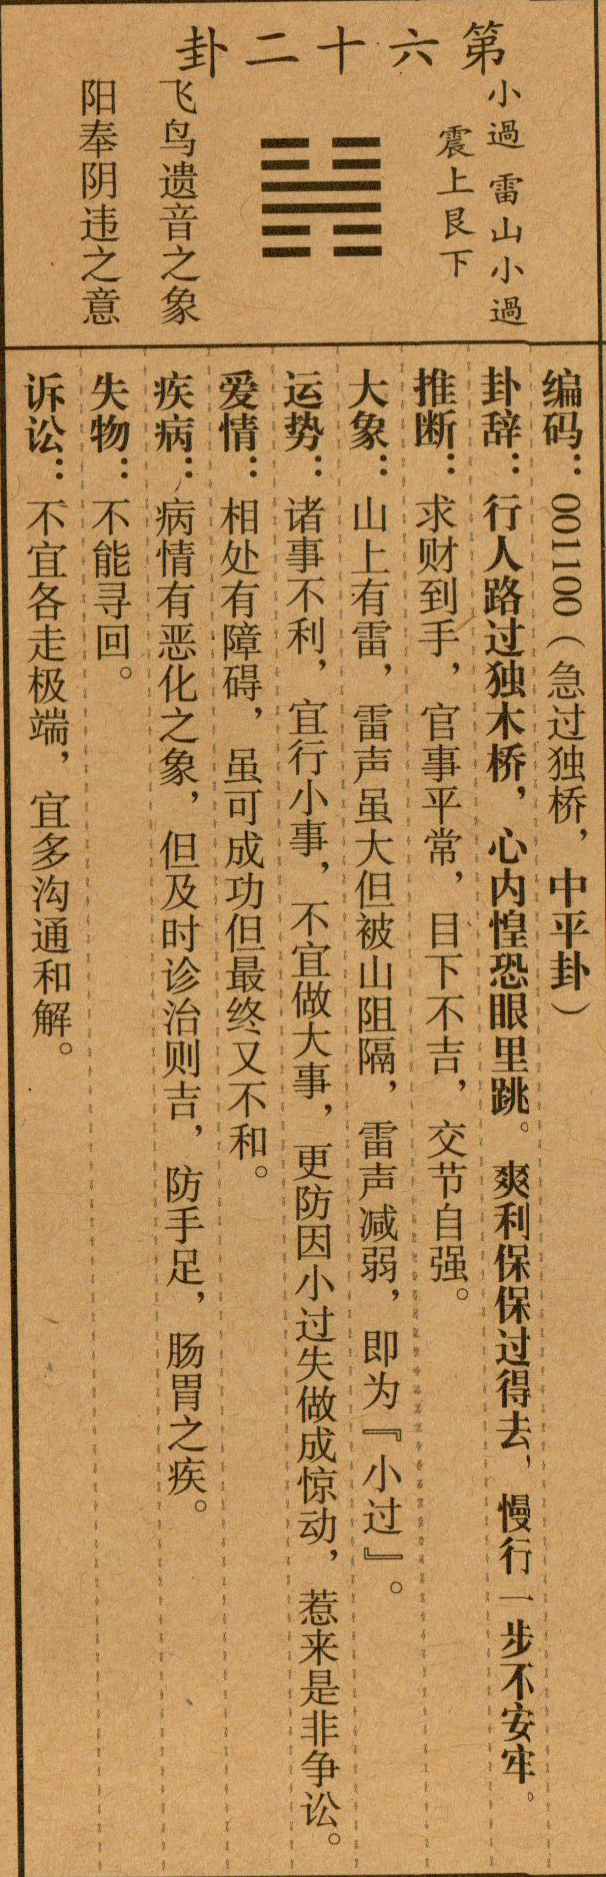 第六十二卦
小過 雷山小過
震上艮下
飞鸟遗音之象
阳奉阴违之意
编码：001100（急过独桥，中平卦）
卦辞：行人路过独木桥，心内惶恐眼里跳。爽利保保过得去，慢行一步不安牢。
推断：求财到手，官事平常，目下不吉，交节自强。
大象：山上有雷，雷声虽大但被山阻隔，雷声减弱，即为『小过』。
运势：诸事不利，宜行小事，不宜做大事，更防因小过失做成惊动，惹来是非争讼。
爱情：相处有障碍，虽可成功但最终又不和。
疾病：病情有恶化之象，但及时诊治则吉，防手足，肠胃之疾。
失物：不能寻回。
诉讼：不宜各走极端，宜多沟通和解。